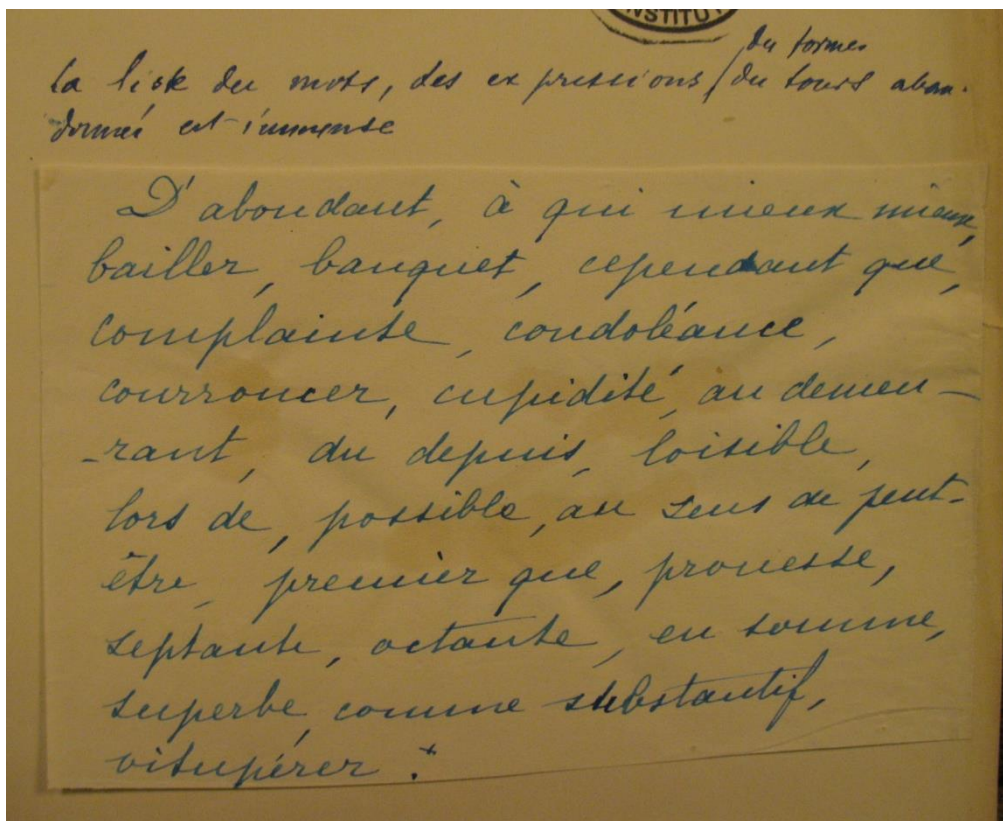 INSTITUT
des formes
la liste des mots, des expressions / des tours aban-
donnés est immense
D'abondant, à qui mieux mieux,
bailler, banquet, cependant que,
complainte, condoléance,
courroucer, cupidité, au demeu-
-rant, du depuis, loisible,
lors de, possible, au sens de peut-
être, premier que, prouesse,
septante, octante, en somme,
superbe comme substantif,
vitupérer.